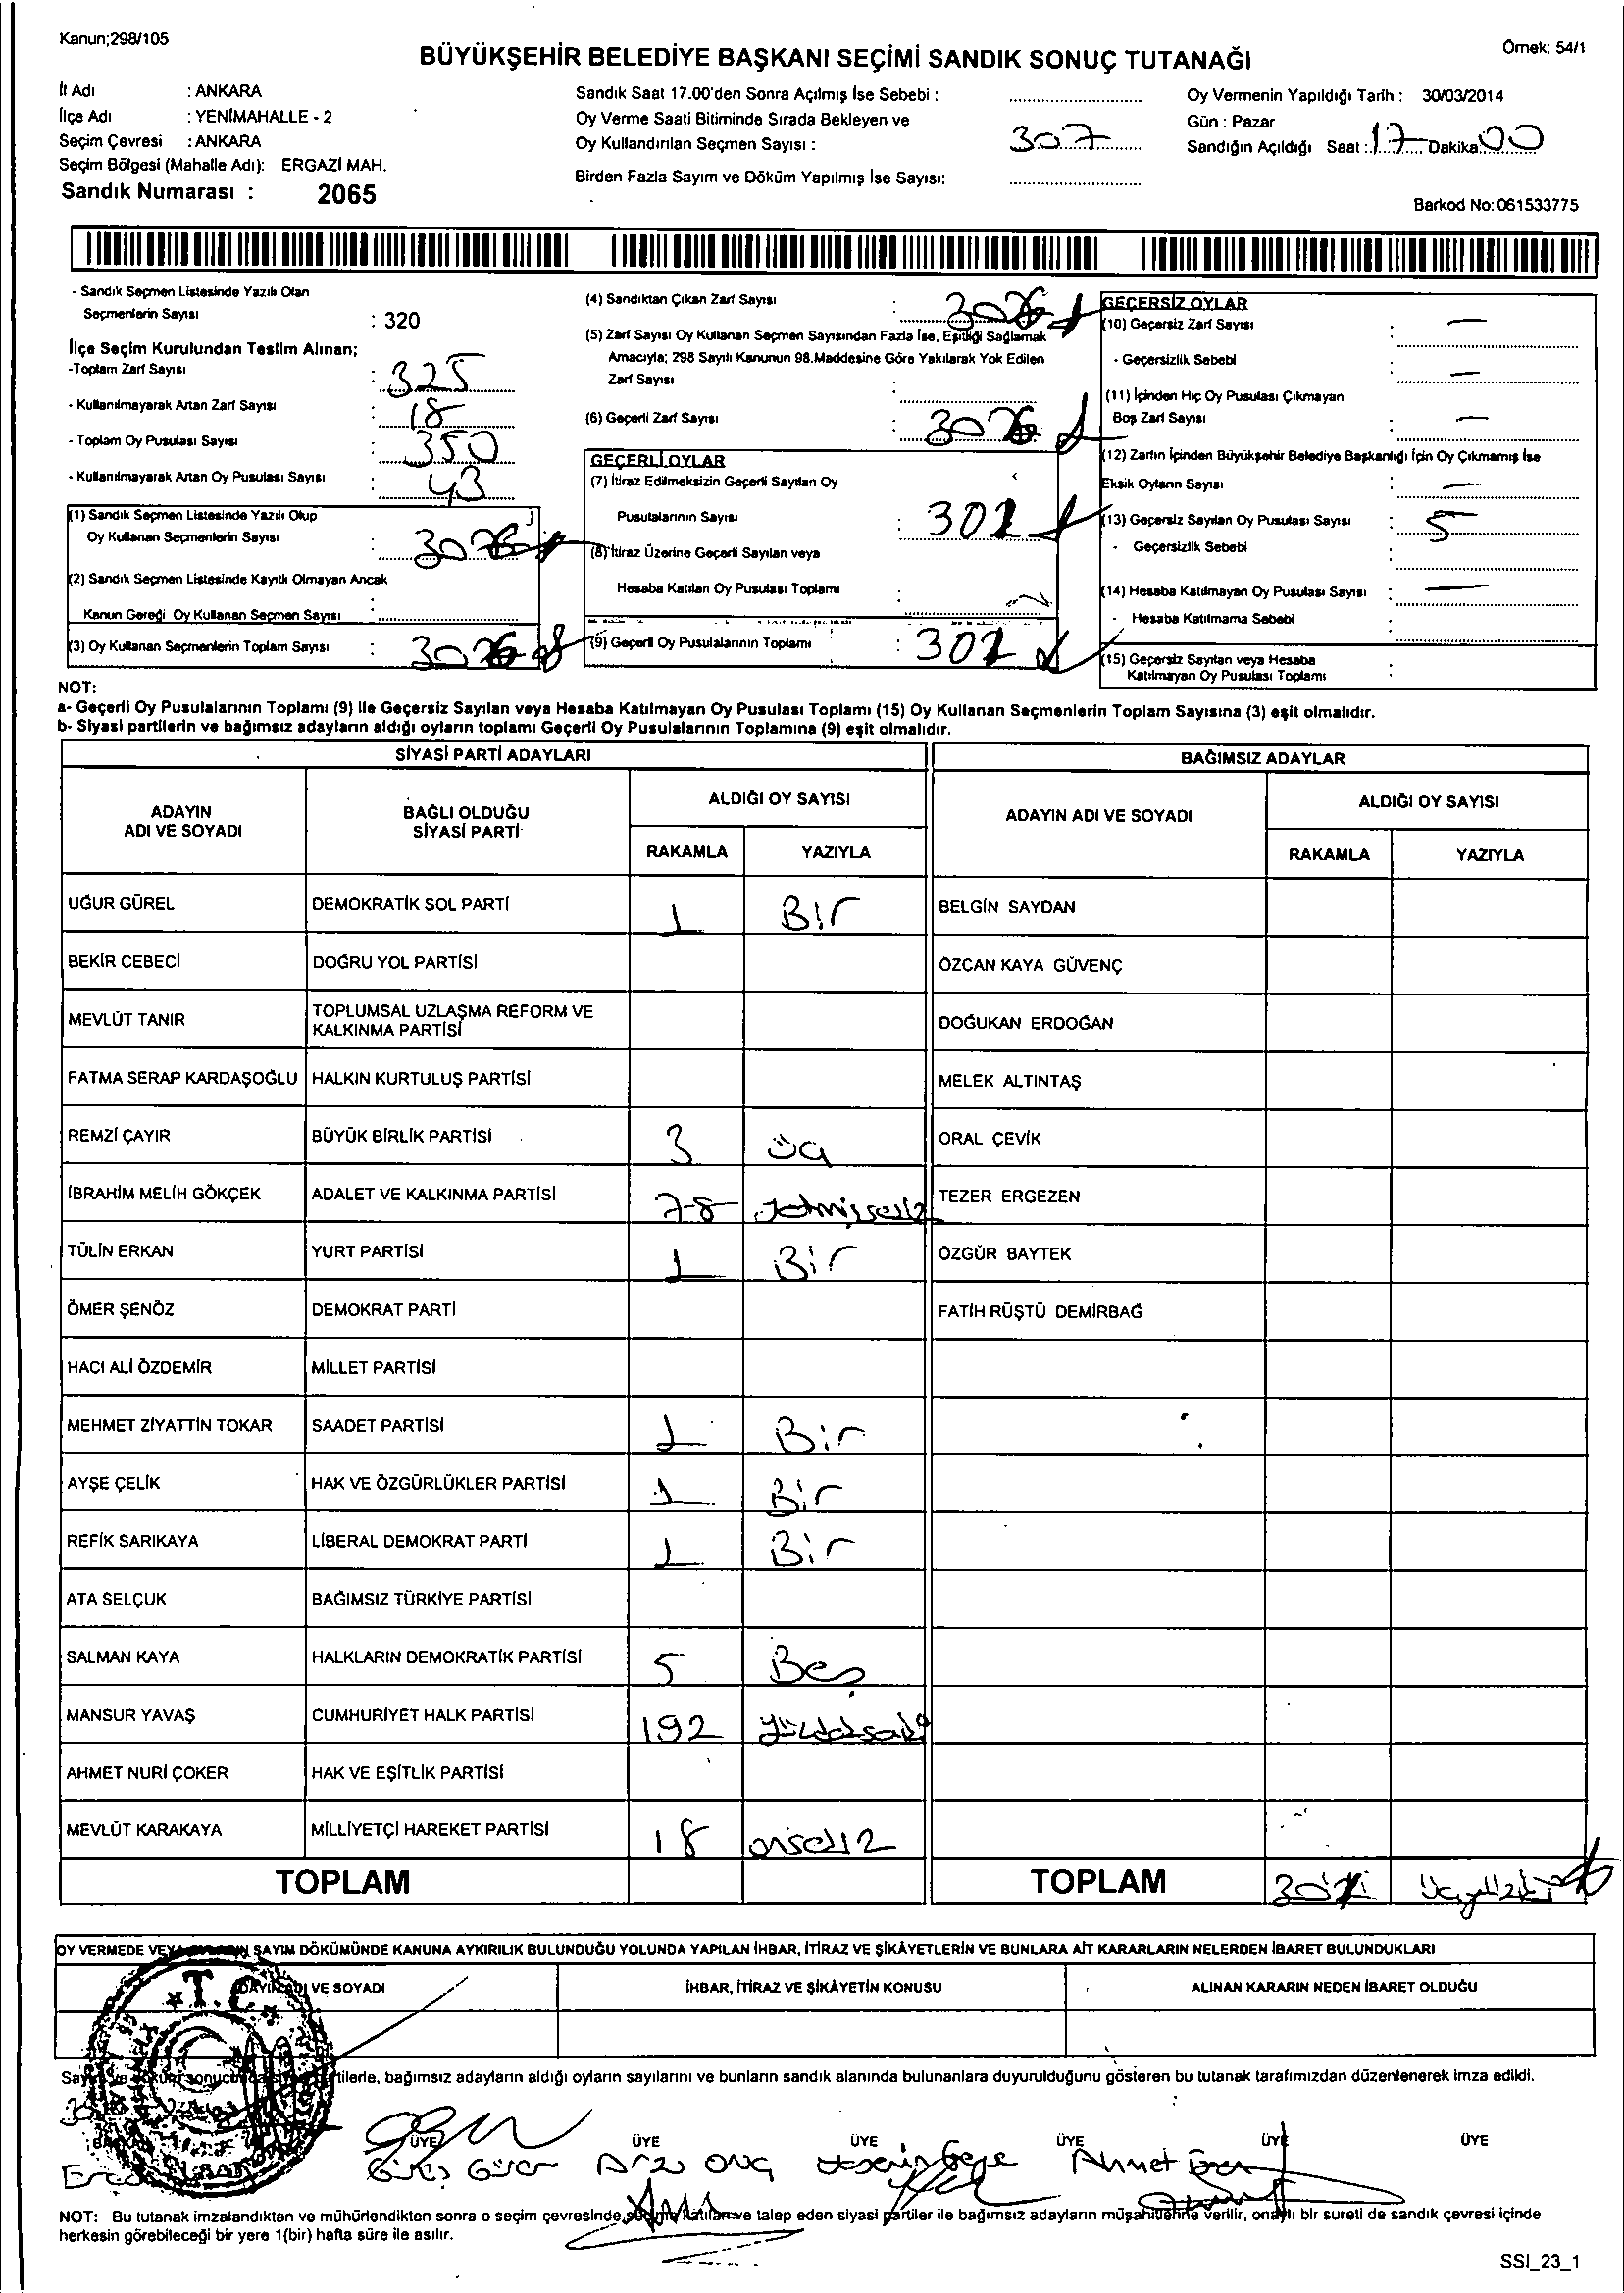 Kanun;298/105
Örnek: 54/1
BÜYÜKŞEHİR BELEDİYE BAŞKANI SEÇİMİ SANDIK SONUÇ TUTANAĞI
İl Adı : ANKARA
İlçe Adı : YENİMAHALLE - 2
Seçim Çevresi : ANKARA
Seçim Bölgesi (Mahalle Adı): ERGAZİ MAH.
Sandık Numarası : 2065
Sandık Saat 17.00'den Sonra Açılmış İse Sebebi :
Oy Verme Saati Bitiminde Sırada Bekleyen ve
Oy Kullandırılan Seçmen Sayısı : 307
Birden Fazla Sayım ve Döküm Yapılmış İse Sayısı:
Oy Vermenin Yapıldığı Tarih : 30/03/2014
Gün : Pazar
Sandığın Açıldığı Saat : 17 Dakika 00
Barkod No: 061533775
- Sandık Seçmen Listesinde Yazılı Olan
Seçmenlerin Sayısı : 320
İlçe Seçim Kurulundan Teslim Alınan;
-Toplam Zarf Sayısı : 325
- Kullanılmayarak Artan Zarf Sayısı : 18
- Toplam Oy Pusulası Sayısı : 350
- Kullanılmayarak Artan Oy Pusulası Sayısı : 43
(1) Sandık Seçmen Listesinde Yazılı Olup
Oy Kullanan Seçmenlerin Sayısı :
(2) Sandık Seçmen Listesinde Kayıtlı Olmayan Ancak
Kanun Gereği Oy Kullanan Seçmen Sayısı :
(3) Oy Kullanan Seçmenlerin Toplam Sayısı :
(4) Sandıktan Çıkan Zarf Sayısı :
(5) Zarf Sayısı Oy Kullanan Seçmen Sayısından Fazla İse, Eşitliği Sağlamak
Amacıyla; 298 Sayılı Kanunun 98.Maddesine Göre Yakılarak Yok Edilen
Zarf Sayısı :
(6) Geçerli Zarf Sayısı :
GEÇERLİ OYLAR
(7) İtiraz Edilmeksizin Geçerli Sayılan Oy
Pusulalarının Sayısı :
(8) İtiraz Üzerine Geçerli Sayılan veya
Hesaba Katılan Oy Pusulası Toplamı :
(9) Geçerli Oy Pusulalarının Toplamı :
GEÇERSİZ OYLAR
(10) Geçersiz Zarf Sayısı : —
- Geçersizlik Sebebi : —
(11) İçinden Hiç Oy Pusulası Çıkmayan
Boş Zarf Sayısı : —
(12) Zarfın İçinden Büyükşehir Belediye Başkanlığı İçin Oy Çıkmamış İse
Eksik Oyların Sayısı : —
(13) Geçersiz Sayılan Oy Pusulası Sayısı : 5
- Geçersizlik Sebebi
(14) Hesaba Katılmayan Oy Pusulası Sayısı : —
- Hesaba Katılmama Sebebi :
(15) Geçersiz Sayılan veya Hesaba
Katılmayan Oy Pusulası Toplamı :
NOT:
a- Geçerli Oy Pusulalarının Toplamı (9) ile Geçersiz Sayılan veya Hesaba Katılmayan Oy Pusulası Toplamı (15) Oy Kullanan Seçmenlerin Toplam Sayısına (3) eşit olmalıdır.
b- Siyasi partilerin ve bağımsız adayların aldığı oyların toplamı Geçerli Oy Pusulalarının Toplamına (9) eşit olmalıdır.
SİYASİ PARTİ ADAYLARI BAĞIMSIZ ADAYLAR
ADAYIN ADI VE SOYADI BAĞLI OLDUĞU SİYASİ PARTİ ALDIĞI OY SAYISI ADAYIN ADI VE SOYADI ALDIĞI OY SAYISI
RAKAMLA YAZIYLA RAKAMLA YAZIYLA
UĞUR GÜREL DEMOKRATİK SOL PARTİ 1 Bir BELGİN SAYDAN
BEKİR CEBECİ DOĞRU YOL PARTİSİ ÖZCAN KAYA GÜVENÇ
MEVLÜT TANIR TOPLUMSAL UZLAŞMA REFORM VE KALKINMA PARTİSİ DOĞUKAN ERDOĞAN
FATMA SERAP KARDAŞOĞLU HALKIN KURTULUŞ PARTİSİ MELEK ALTINTAŞ
REMZİ ÇAYIR BÜYÜK BİRLİK PARTİSİ 3 Üç ORAL ÇEVİK
İBRAHİM MELİH GÖKÇEK ADALET VE KALKINMA PARTİSİ 78 Yetmişsekiz TEZER ERGEZEN
TÜLİN ERKAN YURT PARTİSİ 1 Bir ÖZGÜR BAYTEK
ÖMER ŞENÖZ DEMOKRAT PARTİ FATİH RÜŞTÜ DEMİRBAĞ
HACI ALİ ÖZDEMİR MİLLET PARTİSİ
MEHMET ZİYATTİN TOKAR SAADET PARTİSİ 1 Bir
AYŞE ÇELİK HAK VE ÖZGÜRLÜKLER PARTİSİ 1 Bir
REFİK SARIKAYA LİBERAL DEMOKRAT PARTİ 1 Bir
ATA SELÇUK BAĞIMSIZ TÜRKİYE PARTİSİ
SALMAN KAYA HALKLARIN DEMOKRATİK PARTİSİ 5 Beş
MANSUR YAVAŞ CUMHURİYET HALK PARTİSİ 192
AHMET NURİ ÇOKER HAK VE EŞİTLİK PARTİSİ
MEVLÜT KARAKAYA MİLLİYETÇİ HAREKET PARTİSİ 18 onsekiz
TOPLAM TOPLAM
SAYIM DÖKÜMÜNDE KANUNA AYKIRILIK BULUNDUĞU YOLUNDA YAPILAN İHBAR, İTİRAZ VE ŞİKÂYETLERİN VE BUNLARA AİT KARARLARIN NELERDEN İBARET BULUNDUKLARI
VE SOYADI İHBAR, İTİRAZ VE ŞİKÂYETİN KONUSU ALINAN KARARIN NEDEN İBARET OLDUĞU
T.C.
bağımsız adayların aldığı oyların sayılarını ve bunların sandık alanında bulunanlara duyurulduğunu gösteren bu tutanak tarafımızdan düzenlenerek imza edildi.
ÜYE ÜYE ÜYE ÜYE ÜYE ÜYE
Ahmet
NOT: Bu tutanak imzalandıktan ve mühürlendikten sonra o seçim çevresinde, ve talep eden siyasi partiler ile bağımsız adayların müşahitlerine verilir, onaylı bir sureti de sandık çevresi içinde
herkesin görebileceği bir yere 1(bir) hafta süre ile asılır.
SSI_23_1